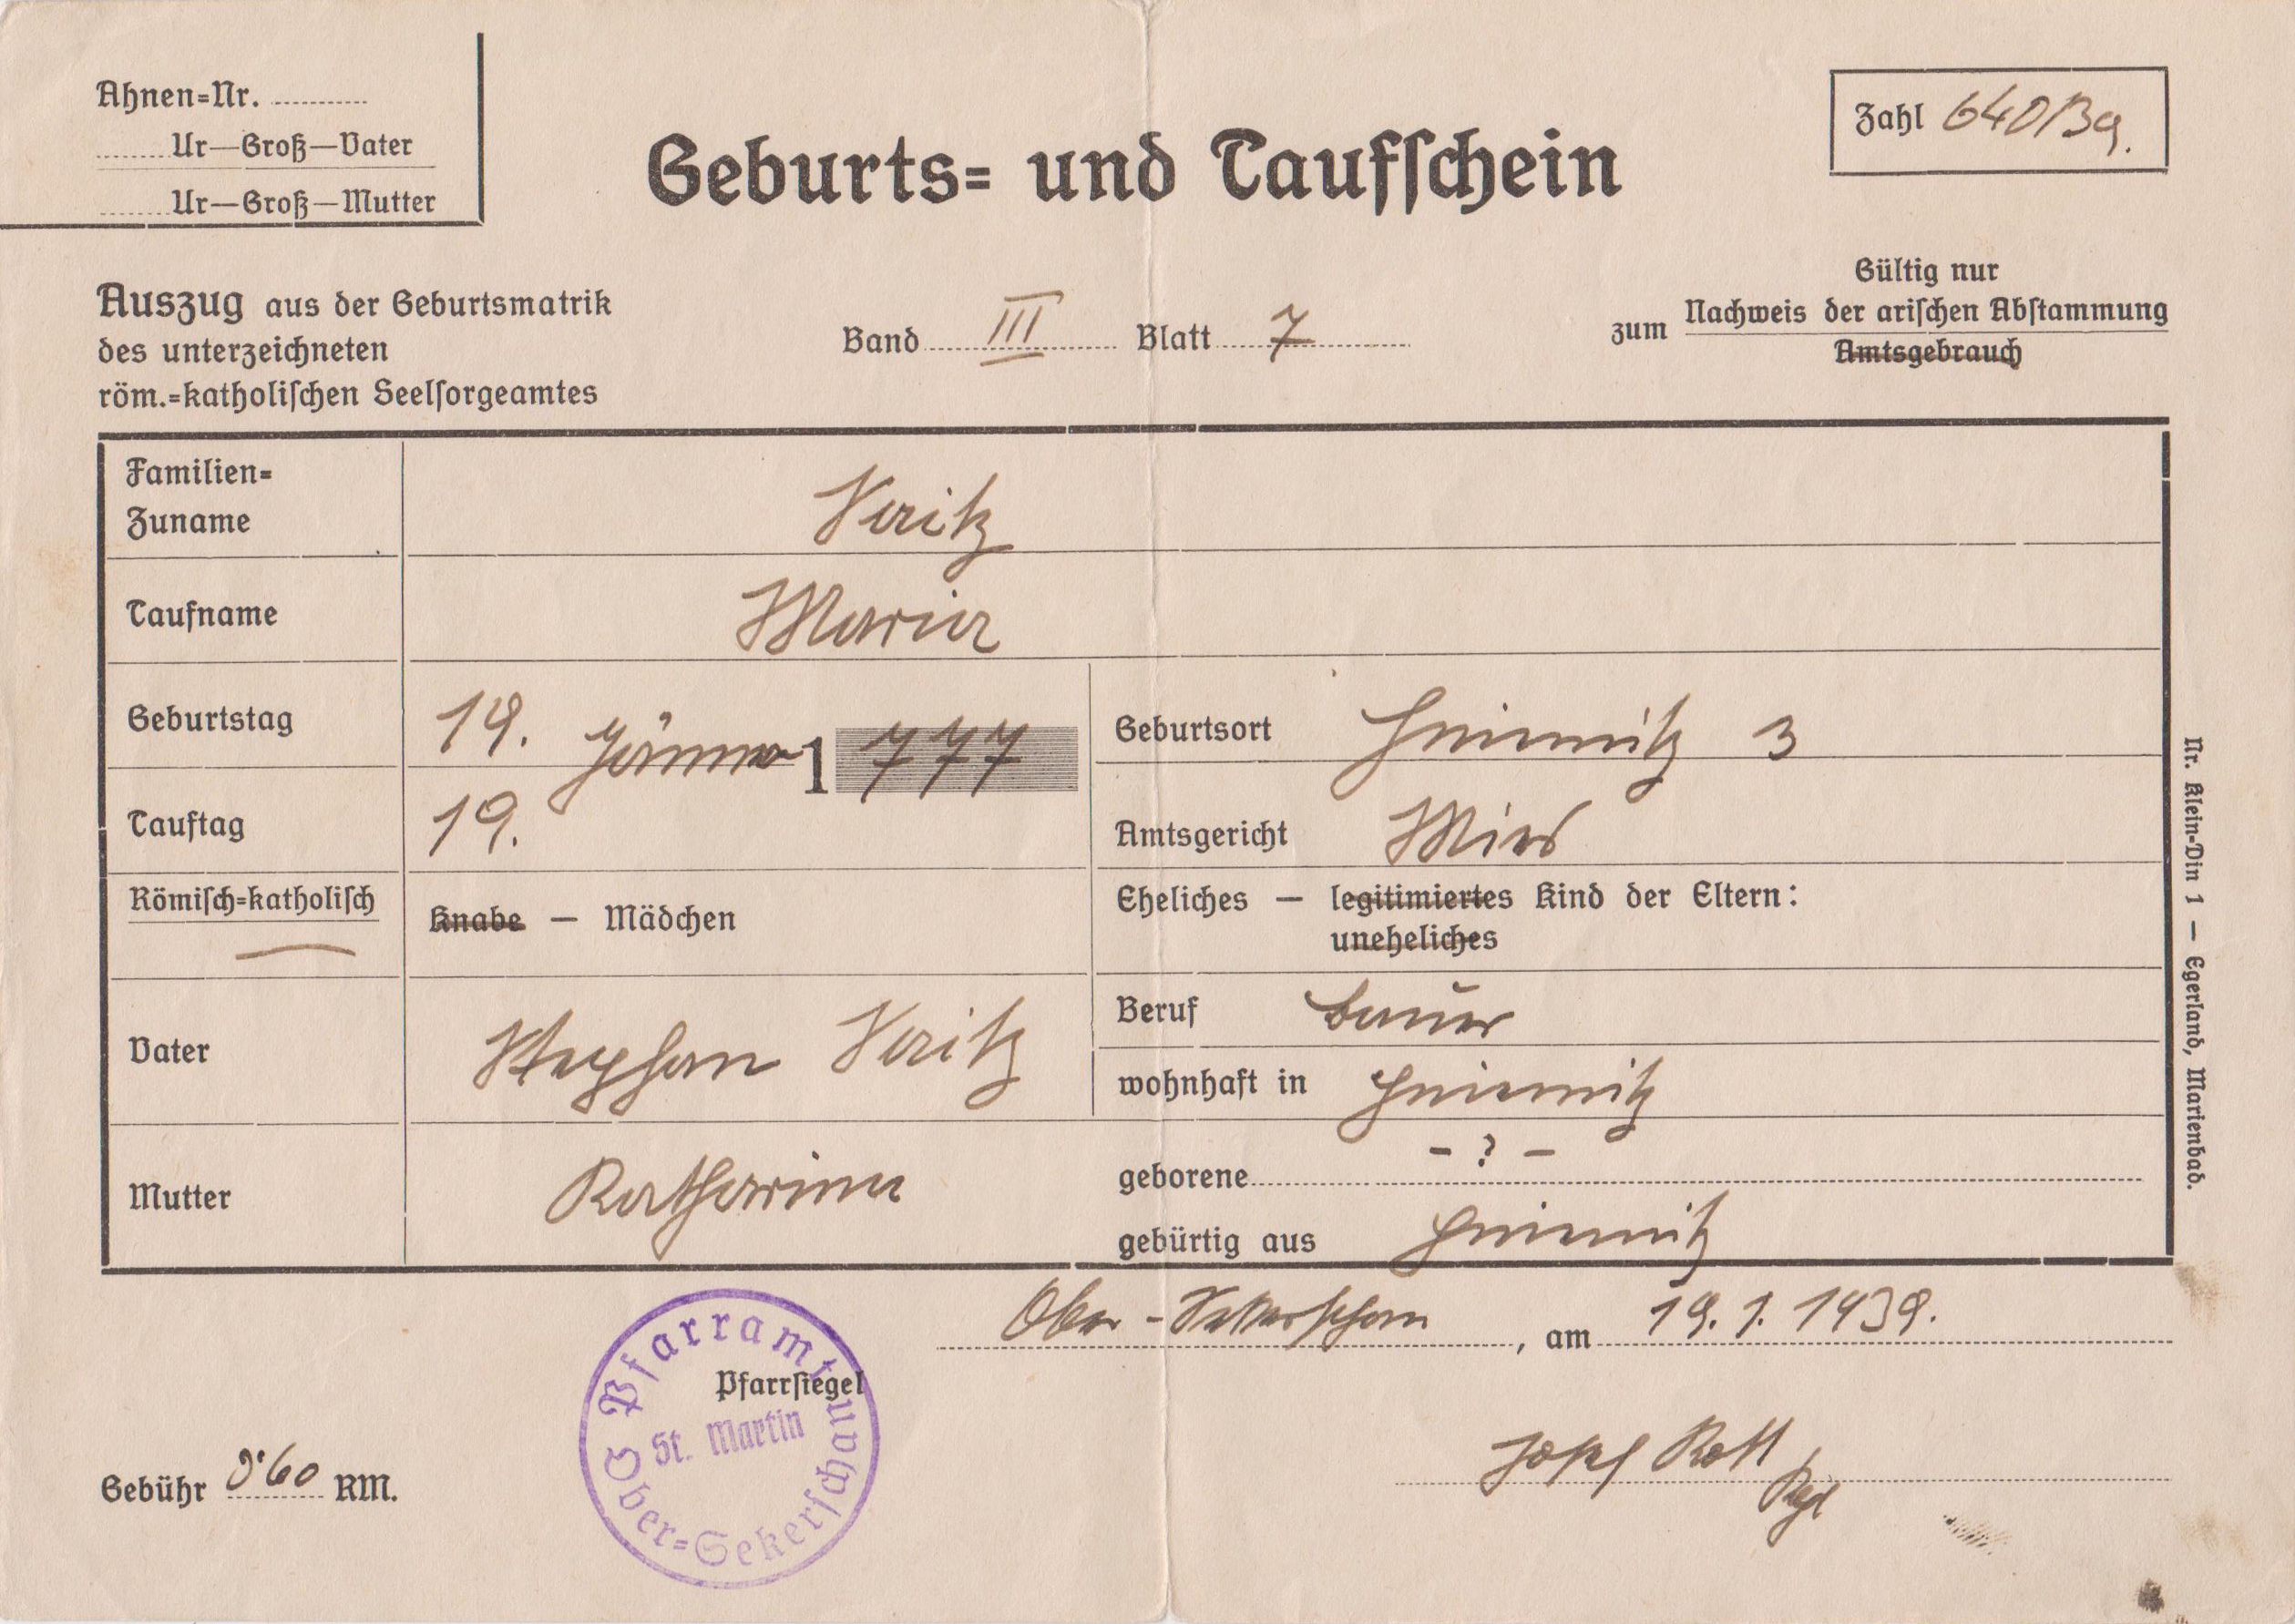 Ahnen=Nr.
Ur—Groß—Vater
Ur—Groß—Mutter
Geburts= und Taufschein
Zahl 640/39.
Auszug aus der Geburtsmatrik
des unterzeichneten
röm.=katholischen Seelsorgeamtes
Band III Blatt 7
Gültig nur
zum Nachweis der arischen Abstammung
Amtsgebrauch
Familien=
Zuname
Veitz
Taufname Maria
Geburtstag 19. Jänner 1777
Geburtsort 3
Tauftag 19.
Amtsgericht Mies
Römisch=katholisch
Knabe — Mädchen
Eheliches — legitimiertes Kind der Eltern:
uneheliches
Vater Stephan Veitz
Beruf Bauer
wohnhaft in
Mutter Katharina
geborene - ? -
gebürtig aus
Ober-Sekerschan, am 19.1.1939.
Pfarrsiegel
Pfarramt
St. Martin
Ober=Sekerschan
Gebühr 0'60 RM.
Josef
Nr. Klein-Din 1 — Egerland, Marienbad.